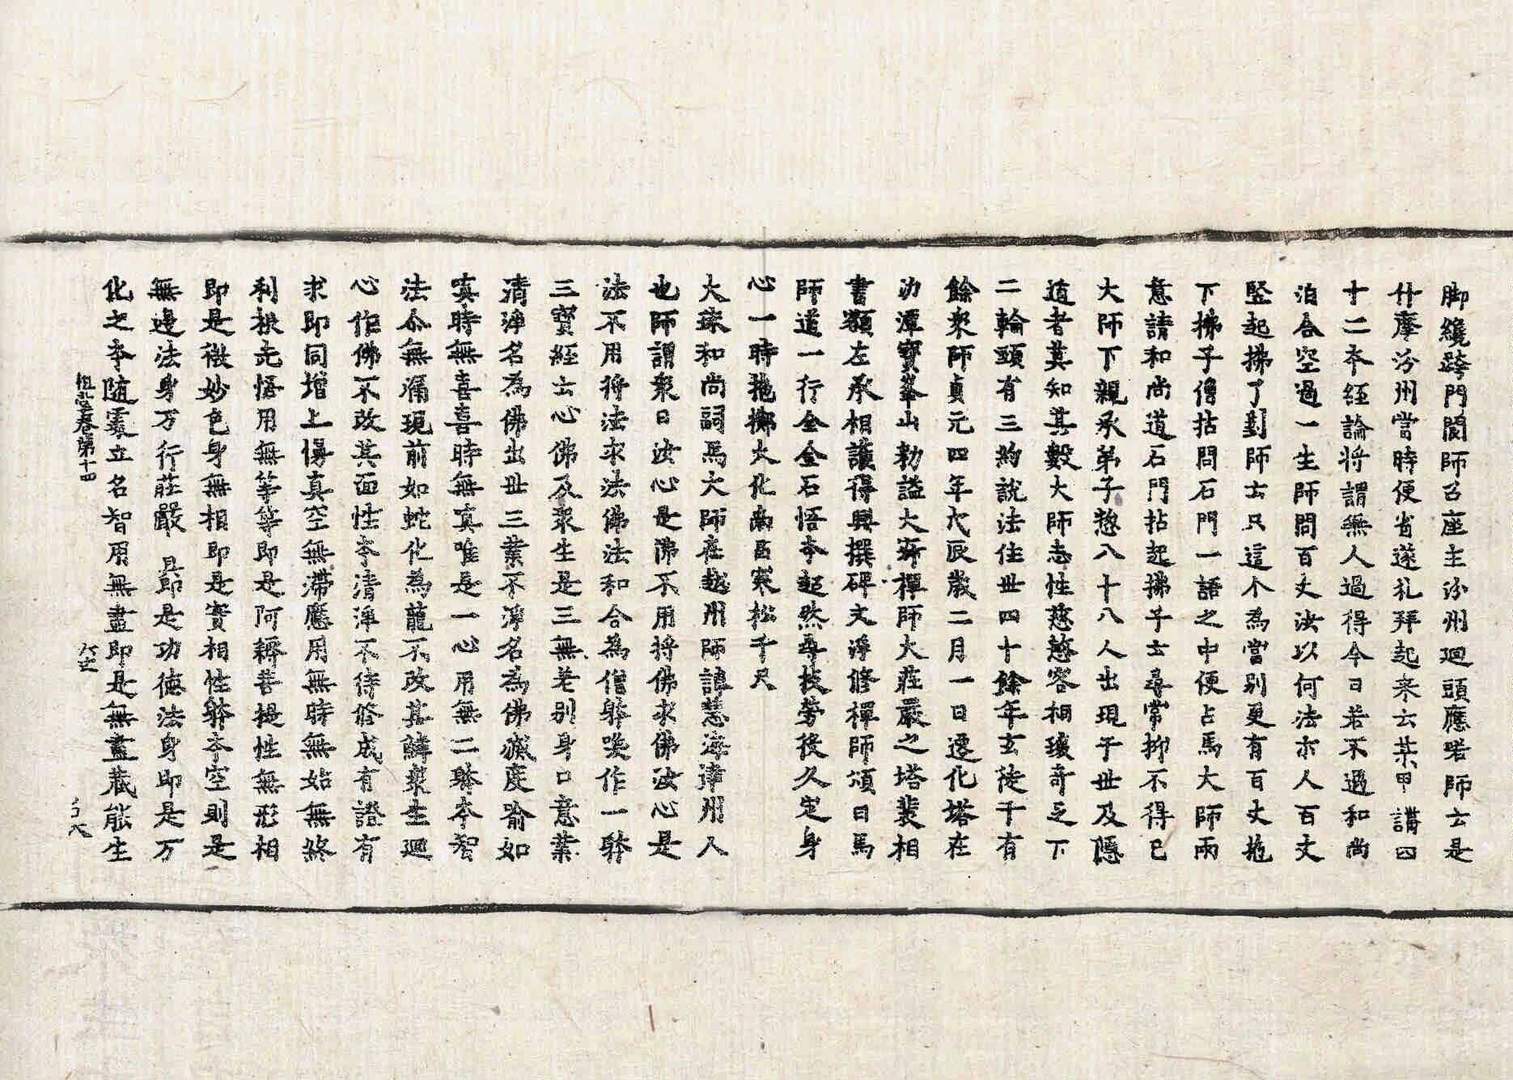 脚纔跨門閫師召座主汾州迴頭應喏師云是
什摩汾州當時便省遂礼拜起来云某甲講四
十二本経論将謂無人過得今日若不遇和尚
洎合空過一生師問百丈汝以何法示人百丈
竪起拂子對師云只這个為當別更有百丈抛
下拂子僧拈問石門一語之中便占馬大師兩
意請和尚道石門拈起拂子云尋常抑不得已
大師下親承弟子惣八十八人出現于世及隱
遁者莫知其數大師志性慈愍容相瓌奇足下
二輪頸有三約說法住世四十餘年玄徒千有
餘衆師貞元四年戊辰歳二月一日遷化塔在
泐潭寶峯山勅謚大寂禪師大莊嚴之塔裴相
書額左承相護得興撰碑文淨修禪師頌曰馬
師道一行全金石悟本超然尋枝勞後久定身
心一時抛擲大化南昌寒松千尺
大珠和尚詞馬大師在越州師諱慧海達州人
也師謂衆曰汝心是佛不用将佛求佛汝心是
法不用将法求法佛法和合為僧躰喚作一躰
三寶経云心佛及衆生是三無差別身口意業
清淨名為佛出世三業不淨名為佛滅度喻如
嗔時無喜喜時無嗔唯是一心用無二躰本智
法尒無漏現前如蛇化為龍不改其鱗衆生迴
心作佛不改其面性本清淨不待修成有證有
求即同增上慢真空無滯應用無時無始無終
利根先悟用無等等即是阿耨菩提性無形相
即是微妙色身無相即是實相性躰本空則是
無邊法身万行莊嚴 即是功德法身即是万
化之本随處立名智用無盡即是無盡藏能生
祖堂卷第十四